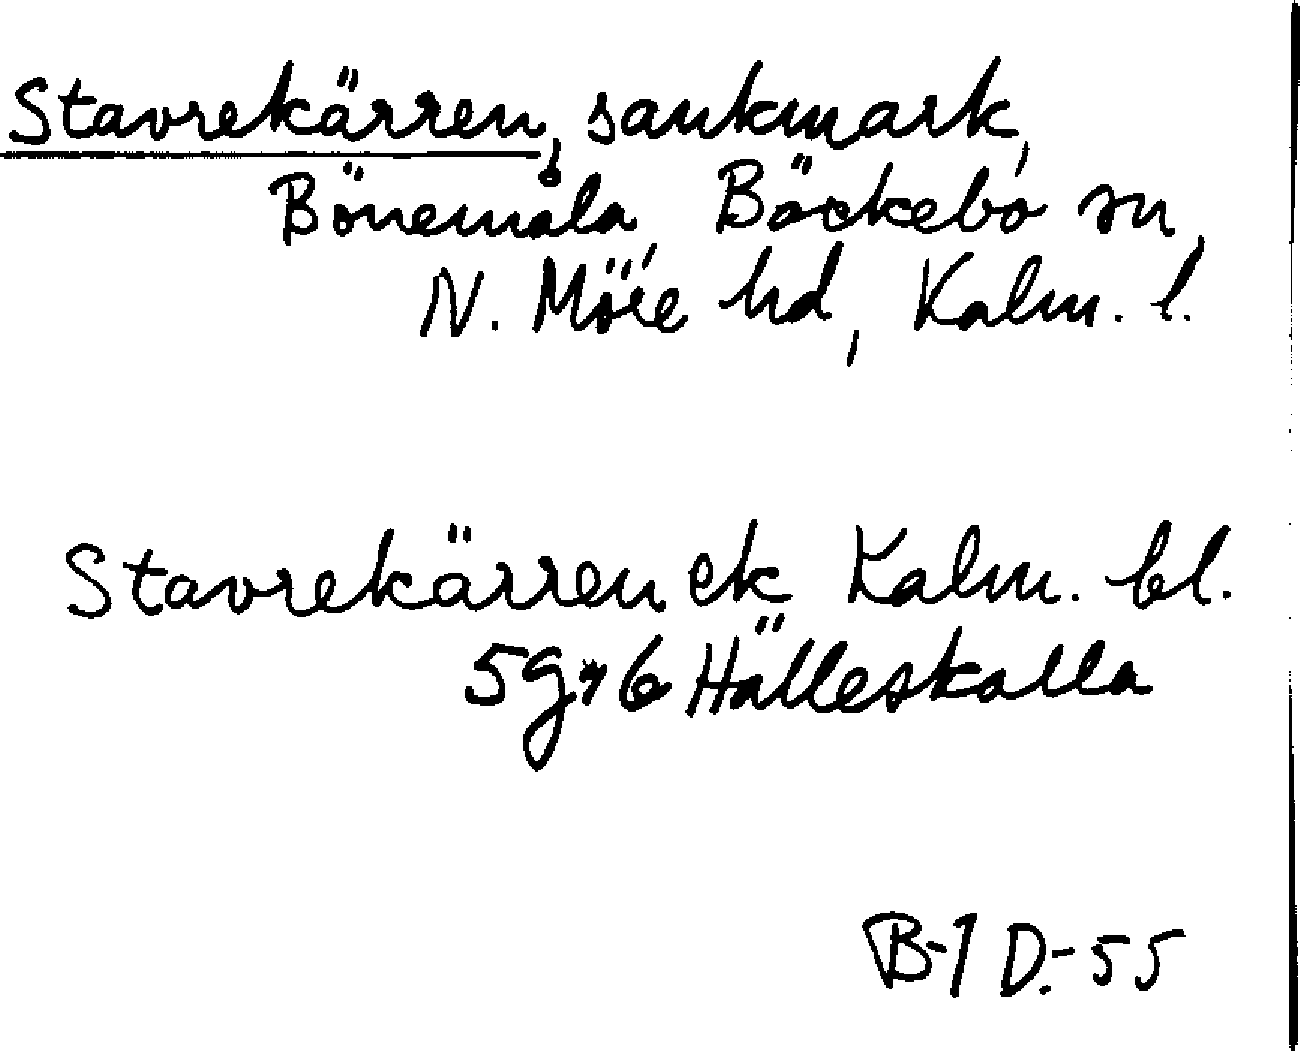 Stavrekärren, sankmark,
Bönemåla, Bäckebo sn,
N. Möre hd, Kalm. l.
Stavrekärren ek Kalm. bl.
5g 6 Hälleskalla
B-1 D.-55